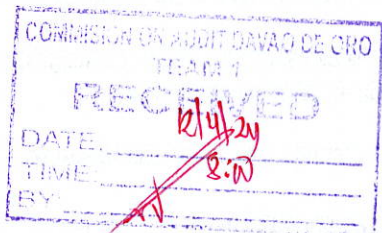 COMMISION ON AUDIT DAVAO DE ORO
TEAM 1
RECEIVED
DATE: 12/4/24
TIME: 8:00
BY: